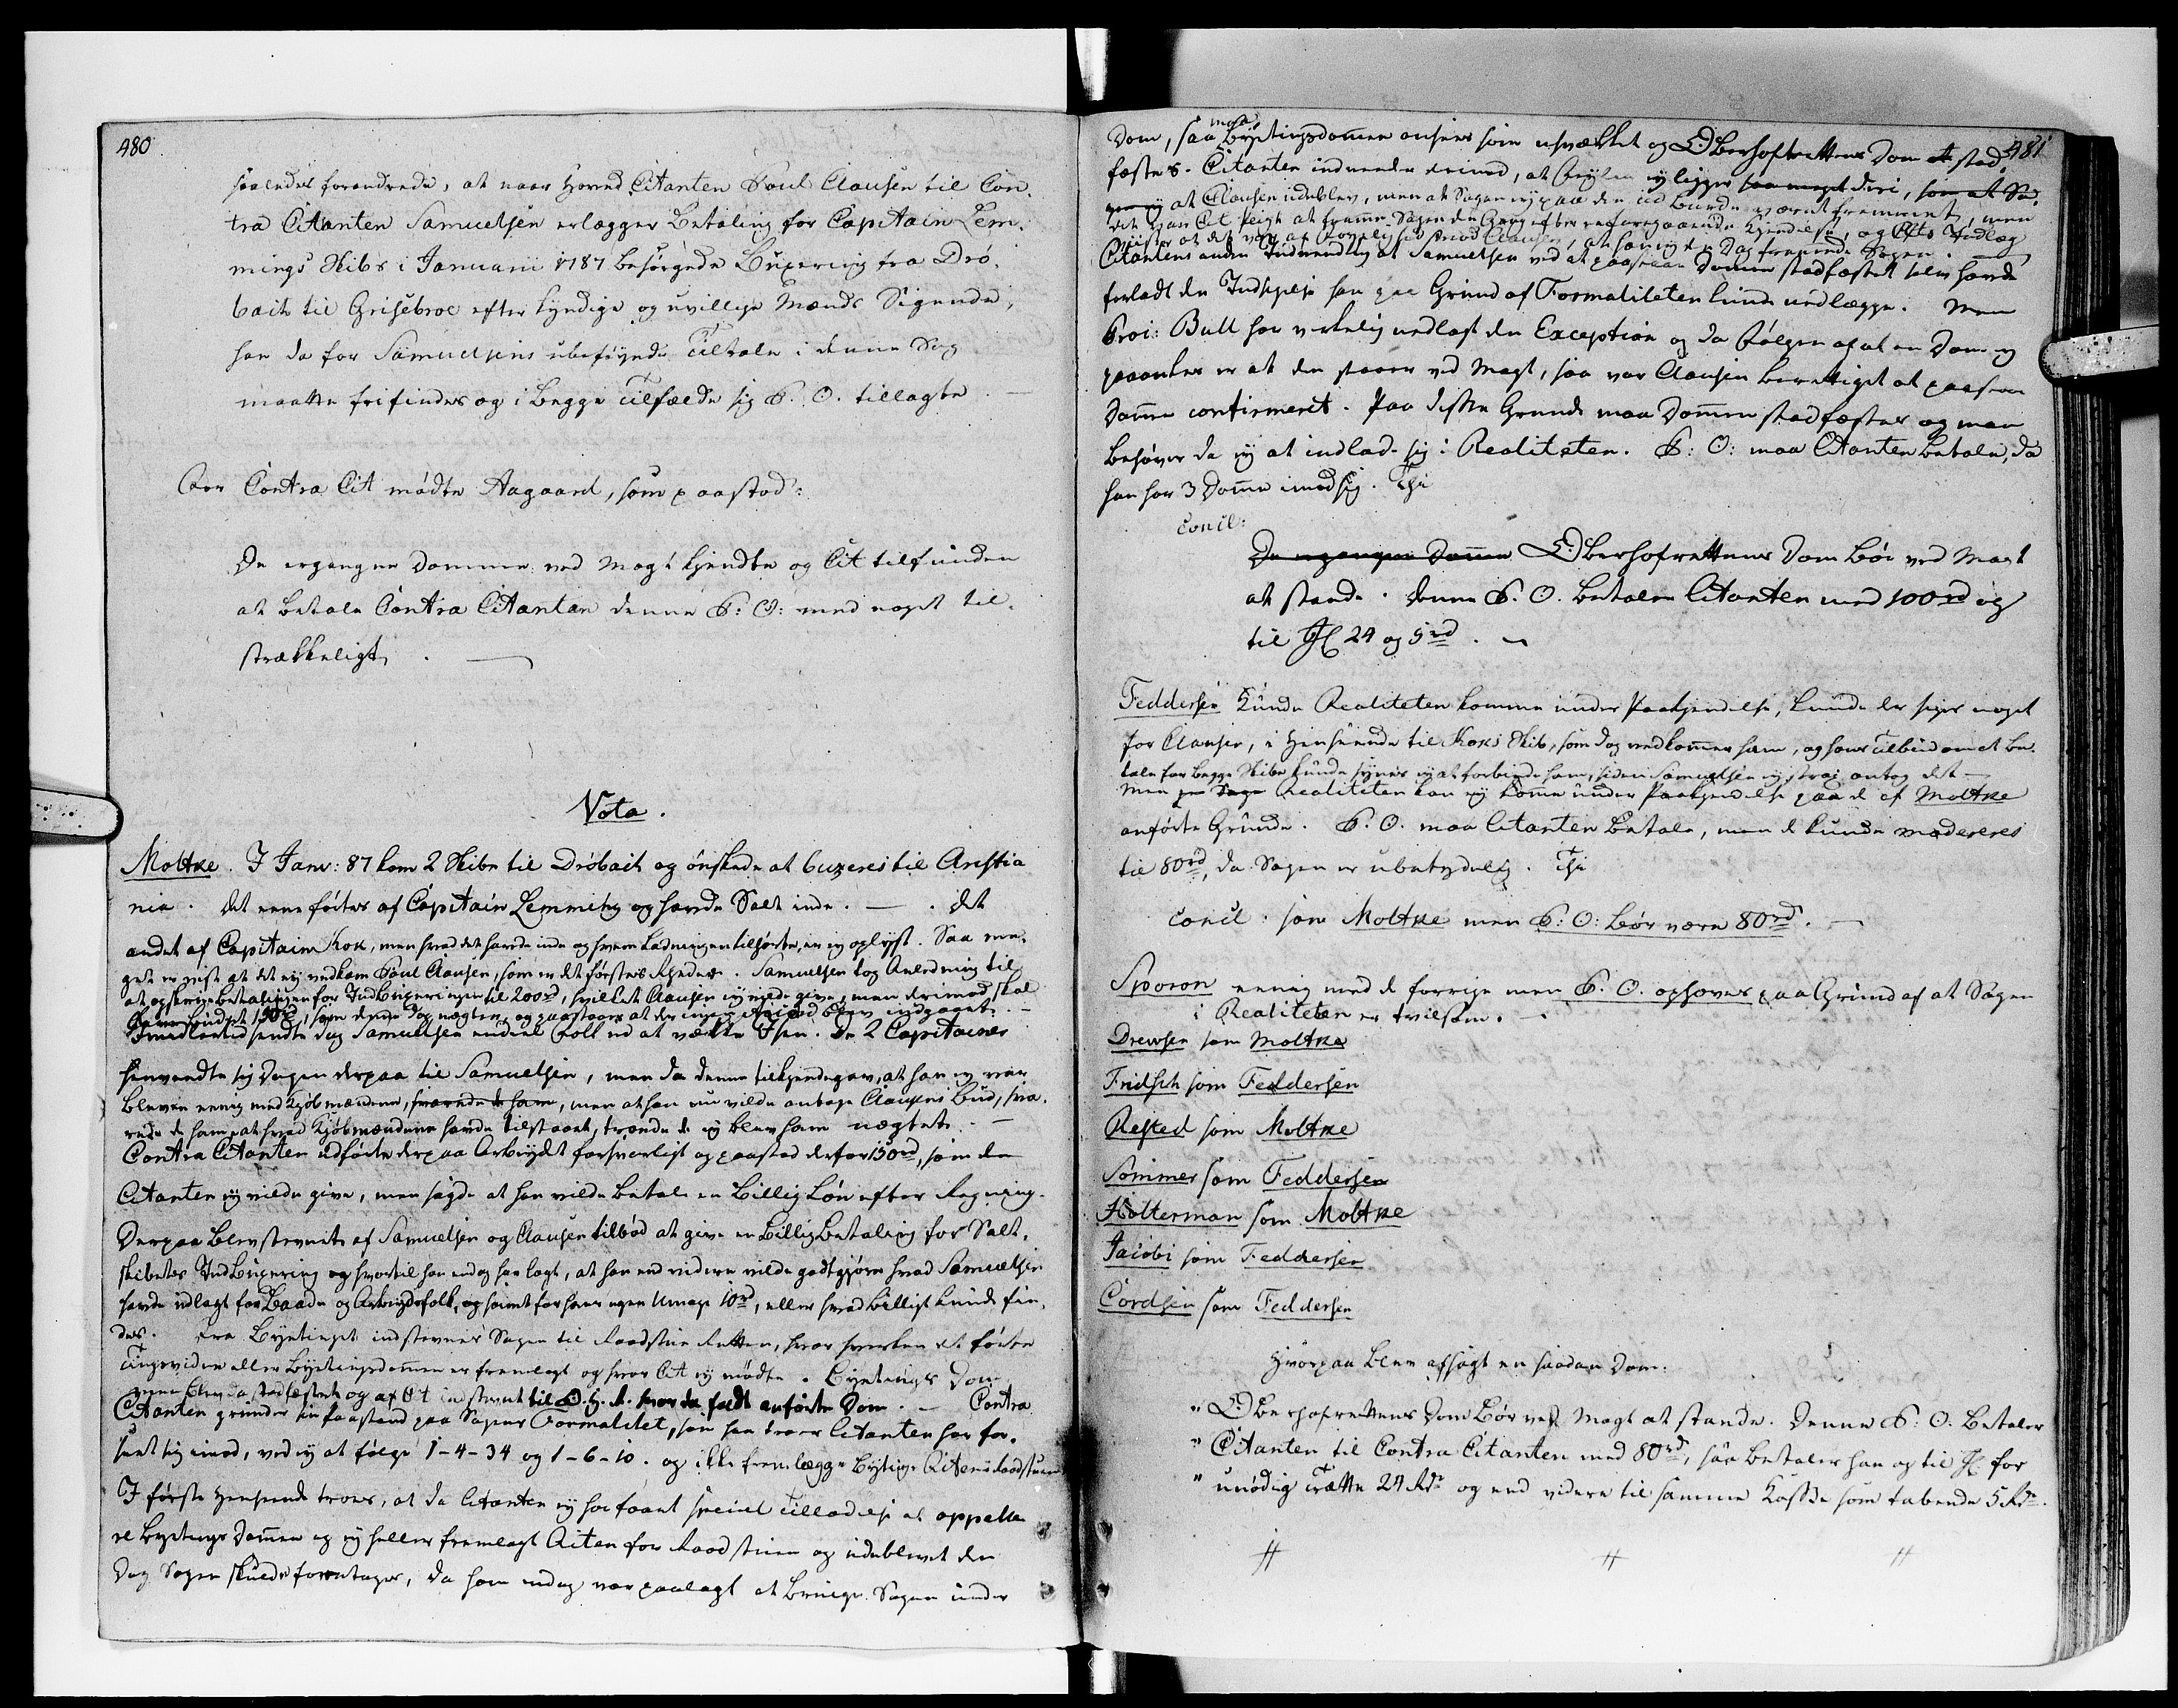 480
saaledes forandrede, at naar Hoved Citanten Poul Clausen til Con-
tra Citanten Samuelsen erlægger Betaling for Capitain Lem-
mings Skibs i Januarii 1787 besørgede Buxering fra Drø-
bach til Grisebroe efter kyndige og uvillige Mænds Sigende,
han da for Samuelsens ubeføyede Tiltale i denne Sag
maatte frifindes og i begge Tilfælde sig P. O. tillagte. —
For Contra Cit mødte Aagaard, som paastod:
De ergangne Domme ved Magt kjendte og Cit tilfunden
at betale Contra Citanten denne P: O: med noget til-
strækkeligt. —
Vota.
Moltke. I Janv: 87 kom 2 Skibe til Drøbach og ønskede at buxeres til Christia
nia. Det eene førtes af Capitain Lemming og havde Salt inde. — . Det
andet af Capitain Kok, men hvad det havde inde og hvem Ladningen tilhørte, er ej oplyst. Saa me-
get er vist at det ej vedkom Poul Clausen, som er det førstes Rheder. Samuelsen tog Anledning til
at opskrive Betalingen for Indbuxeringen til 200rd, hvilket Clausen ej vilde give, men derimod skal
have budet 150rd, som denne dog nægter, og paastaaer at der ingen Accord blev indgaaet. —
Imidlertid sendte dog Samuelsen endeel Folk ud at vække Isen. De 2 Capitainer
henvendte sig Dagen derpaa til Samuelsen, men da denne tilkjendegav, at han ej var
bleven eenig med Kjøbmændene, svarede de ham, men at han nu vilde antage Clausens Bud, sva-
rede de ham, at hvad Kjøbmændene havde tilstaaet, troede de ej blev ham nægtet. —
Contra Citanten udførte derpaa Arbeydet forsvarligt og paastod derfor 150rd, som da
Citanten ej vilde give, men sagde at han vilde betale en billig Løn efter Regning.
Derpaa blev stevnet af Samuelsen og Clausen tilbød at give en billig Betaling for Salt-
skibets Indbuxering og hvortil han endog har lagt, at han end videre vilde godtgjøre hvad Samuelsen
havde udlagt for Baade og Arbeydsfolk, og samt for hans egen Umage 10rd, eller hvad billigt kunde fin-
des. Fra Byetinget indstevnes Sagen til Raadstue Retten, hvor hverken det førte
Tingsvidne eller Byetingsdommen er fremlagt og hvor Cit ej mødte. Byetings Dom
men blev da stadfæstet og af Cit indstevnt til O. H. R. hvor da faldt anførte Dom. — Contra
Citanten grunder sin Paastand paa Sagens Formalitet, som han troer Citanten har for-
seet sig imod, ved ej at følge 1-4-34 og 1-6-10. og ikke fremlægge Bytings Acten i Raadstuen
I første Henseende troer, at da Citanten ej har faaet special Tilladelse at appelle
re Bytings Dommen og ej heller fremlagt Acten for Raadstuen og udeblevet den
Dag Sagen skulde foretages, da ham endog var paalagt at bringe Sagen under
481
Dom, saa maa Bytingsdommen ansees som usvækket og Overhofrettens Dom at stad-
fæstes. Citanten indvender derimod, at Feylen ej ligger saa meget deri, som at Sa-
gen ej at Clausen udeblev, men at Sagen ej paa den Tid burde været fremmet, men
Citantens anden Indvending at Samuelsen ved at paastaae Dommen stadfæstet selv havde
forladt den Indsigelse han paa Grund af Formaliteten kunde nedlægge. Men
Proc: Bull har virkelig nedlagt den Exception og da Følgen af at en Dom ej
paaankes er at den staaer ved Magt, saa var Clausen berettiget at paastaae
Dommen confirmeret. Paa disse Grunde maa Dommen stadfæstes og man
behøver da ej at indlade sig i Realiteten. P: O: maa Citanten betale, da
han har 3 Domme imod sig. Thi
concl:
De ergangne Domme Overhofrettens Dom bør ved Magt
at stande. Denne P. O. betaler Citanten med 100rd og
til JC 24 og 5rd. —
Feddersen Kunde Realiteten komme under Paakjendelse, kunde der siges noget
for Clausen, i Henseende til Koks Skib, som dog vedkommer ham, og hans Tilbud om at be-
tale for begge Skibe kunde synes ej at forbinde ham, siden Samuelsen ej strax antog det —
Men Realiteten kan ej komme under Paakjendelse paa de af Moltke
anførte Grunde. P. O. maa Citanten betale, men de kunde modereres
til 80rd, da Sagen er ubetydelig. Thi
concl: som Moltke men P: O: bør være 80rd. —
Sporon eenig med de forrige men P. O. ophæves paa Grund af at Sagen
i Realiteten er tvilsom. —
Drewsen som Moltke
Fridsch som Feddersen
Rested som Moltke
Sommer som Feddersen
Kolterman som Moltke
Jacobi som Feddersen
Cordsen som Feddersen
Hvorpaa blev afsagt en saadan Dom:
" Overhofrettens Dom bør ved Magt at stande. Denne P: O. betaler
" Citanten til Contra Citanten med 80rd, saa betaler han og til JC for
" unødig Trætte 24 Rdr og end videre til samme Kasse som tabende 5 Rdr.